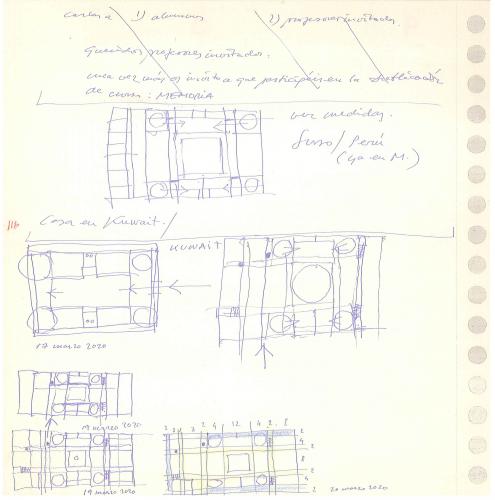 cartas a 1) alumnos 2) profesores invitados.
queridos profesores invitados.
una vez más os invito a que participéis en la publicación
de curso: MEMORIA
ver medidas.
Suso / Perú
(ya en M.)
116
Casa en Kuwait /
KUWAIT
17 marzo 2020
19 marzo 2020
2 2 2 4 12 4 2 8
2
4
8
4
2
19 marzo 2020
20 marzo 2020